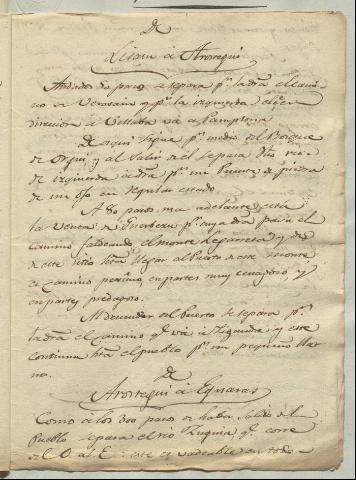 De
Lizaso à Arostegui
Andados 80 pasos se separa p.r la dra. el cami=
no de y p.r la izquierda el q.e en
direccion à va à Pamplona
De aqui sigue p.r medio del Bosque
de Orqui, y al salir de el se separa Sto. rio
de izquierda à dra. p.r un Puente de piedra
de un ojo en regular estado
A 80 pasos mas adelante està
la Venta de p.r cuya dra. pasa el
camino faldeando el monte y des
de este sitio hta. llegar al Puerto de este monte
es camino pesimo, en partes muy cenagoso, y
en partes pedregoso.
Al descender del Puerto se separa p.r
la dra. el camino q.e và à y este
continua hta. el pueblo p.r un pequeño lla=
no.
De
Arostegui à Eguaras
Como à los 300 pasos de haber salido del
Pueblo se pasa el rio q.e corre
del O. al E.: este es vadeable en todo